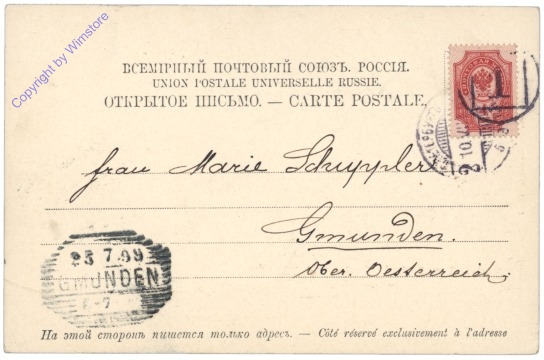 Copyright by Wimstore
ВСЕМІРНЫЙ ПОЧТОВЫЙ СОЮЗЪ. РОССІЯ.
UNION POSTALE UNIVERSELLE RUSSIE.
ОТКРЫТОЕ ПИСЬМО. — CARTE POSTALE.
1
Frau Marie Schuppler
Gmunden.
Ober. Oesterreich.
25 7.99
GMUNDEN
На этой сторонѣ пишется только адресъ. — Côté réservé exclusivement à l'adresse